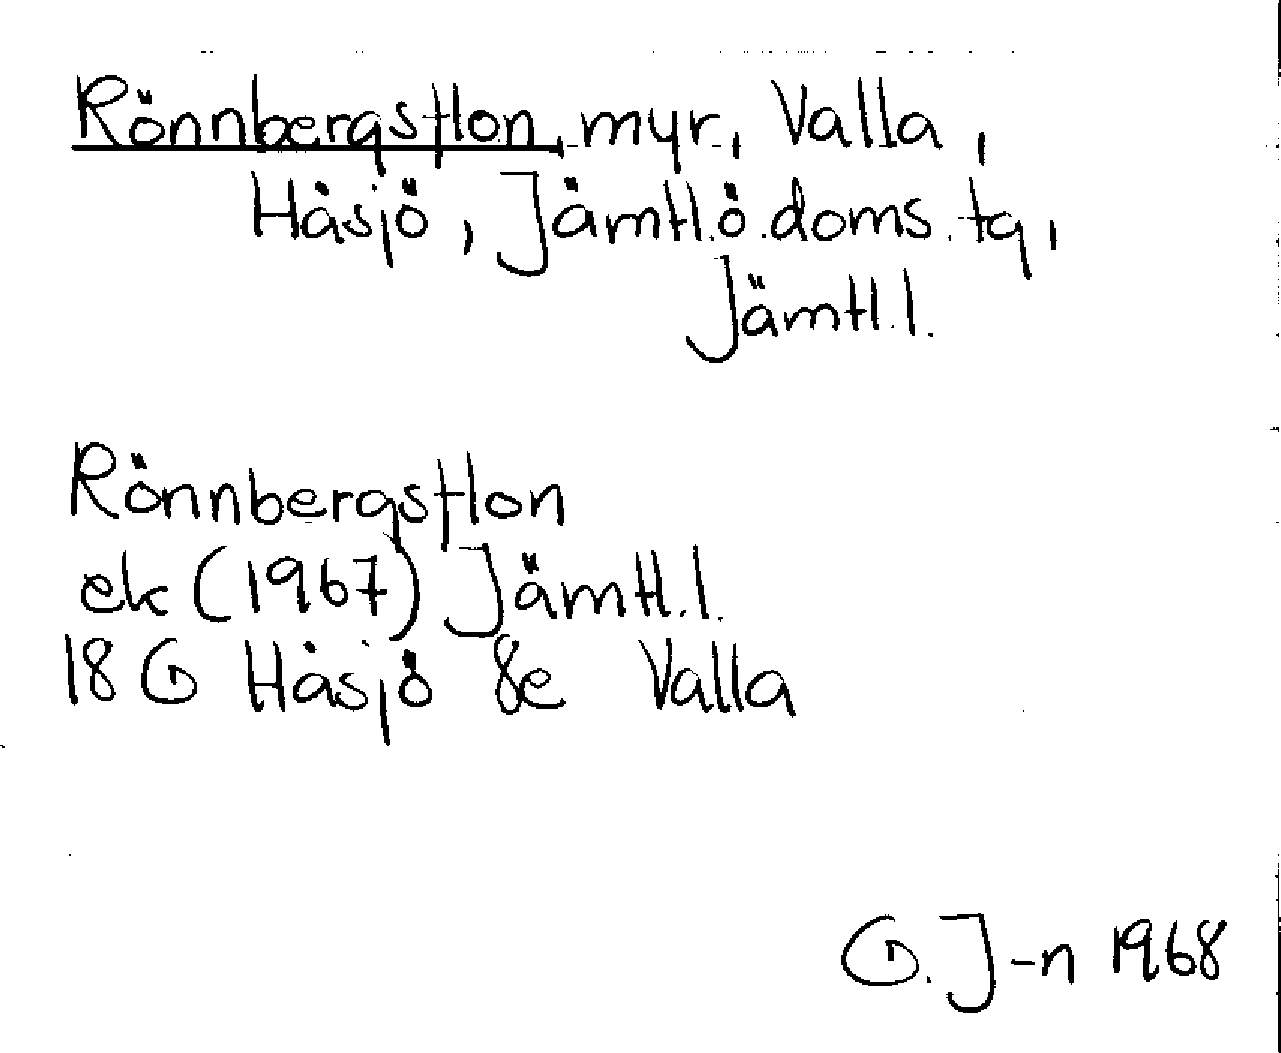 Rönnbergstlon, myr, Valla,
Håsjö, Jämtl.ö.doms.tg,
Jämtl.l.
Rönnbergstlon
ek (1967) Jämtl.l.
18 G Håsjö 8e Valla
G. J-n 1968